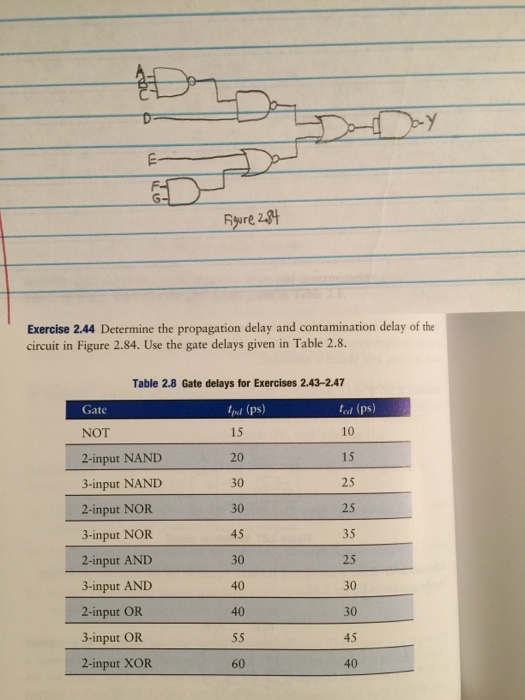 A
B
C
D
E
F
G
Y
Figure 2.84
Exercise 2.44 Determine the propagation delay and contamination delay of the
circuit in Figure 2.84. Use the gate delays given in Table 2.8.
Table 2.8 Gate delays for Exercises 2.43–2.47
Gate tpd (ps) tcd (ps)
NOT 15 10
2-input NAND 20 15
3-input NAND 30 25
2-input NOR 30 25
3-input NOR 45 35
2-input AND 30 25
3-input AND 40 30
2-input OR 40 30
3-input OR 55 45
2-input XOR 60 40